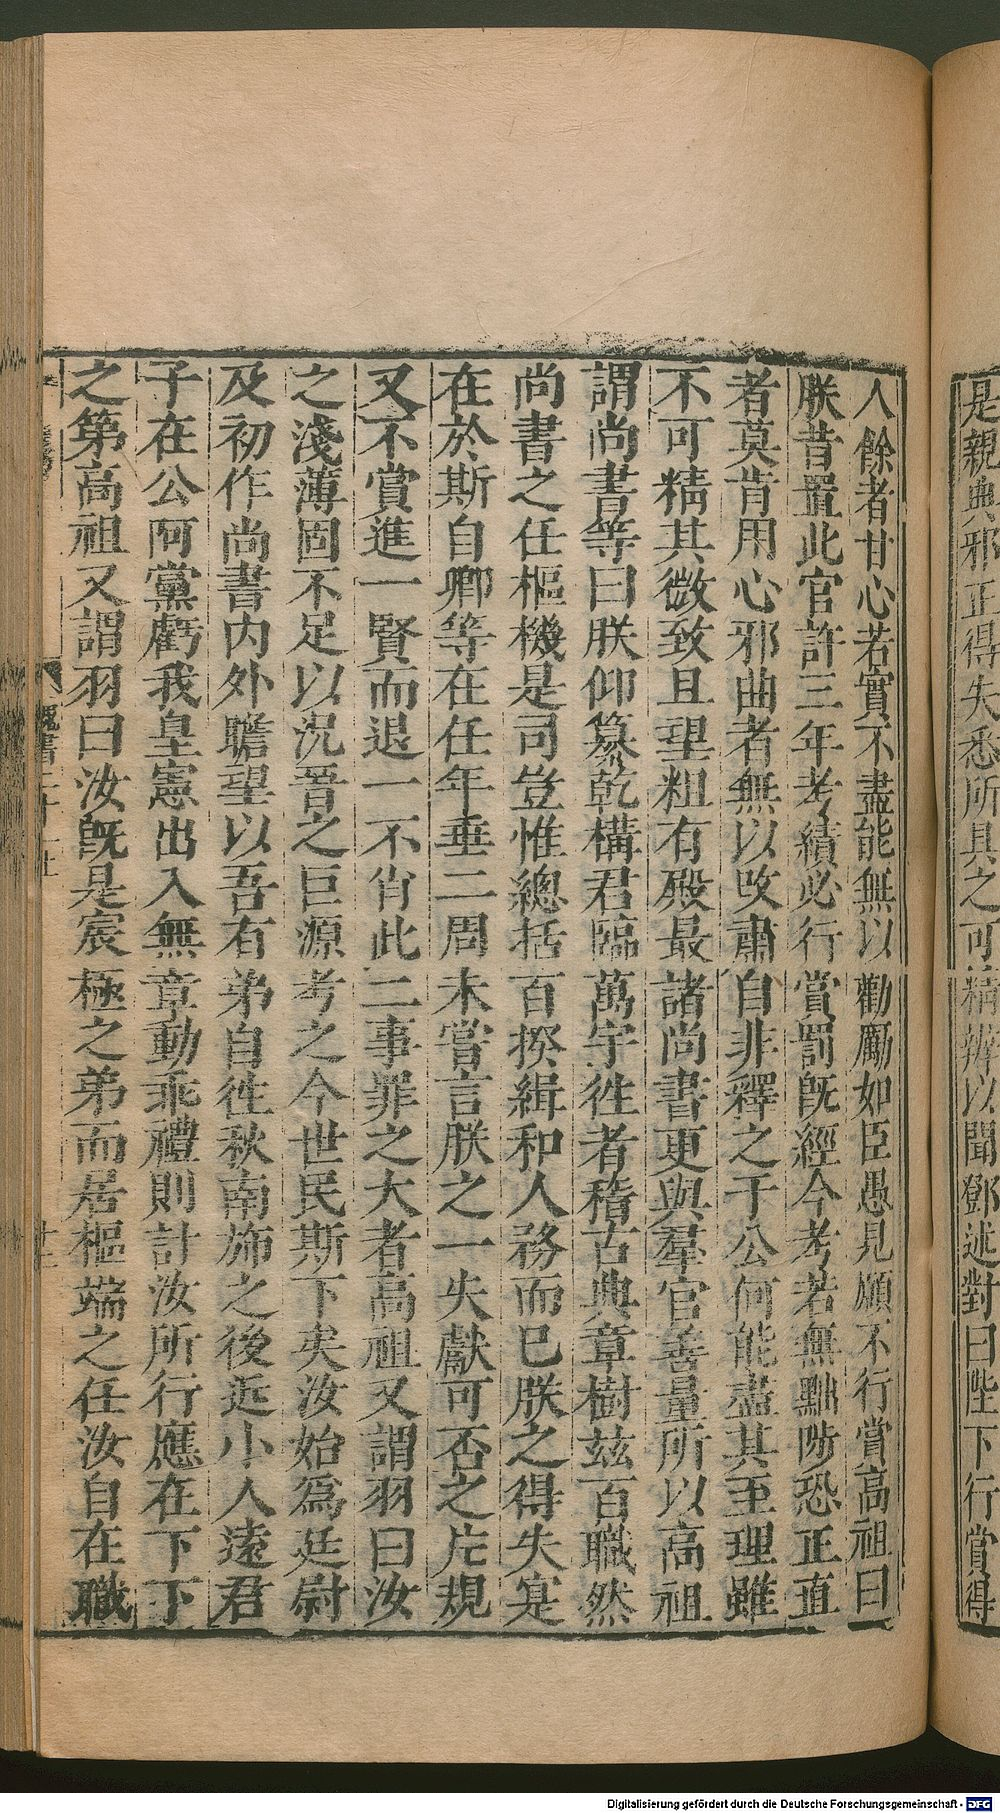 是親典邪正得失悉所具之可精辨以聞鄧述對曰陛下行賞得
人餘者甘心若實不盡能無以勸勵如臣愚見願不行賞高祖曰
朕昔置此官許三年考績必行賞罰既經今考若無黜陟恐正直
者莫肯用心邪曲者無以攺肅自非釋之于公何能盡其至理雖
不可精其微致且望粗有殿最諸尚書更與羣官善量所以高祖
謂尚書等曰朕仰纂乾構君臨萬宇徃者稽古典章樹兹百職然
尚書之任樞機是司豈惟總括百揆緝和人務而已朕之得失寔
在於斯自卿等在任年垂二周未嘗言朕之一失獻可否之片規
又不賞進一賢而退一不肖此二事罪之大者高祖又謂羽曰汝
之淺薄固不足以況晉之巨源考之今世民斯下矣汝始爲廷尉
及初作尚書内外瞻望以吾有弟自徃秋南斾之後近小人遠君
子在公阿黨虧我皇憲出入無章動乖禮則計汝所行應在下下
之第高祖又謂羽曰汝既是宸極之弟而居樞端之任汝自在職
魏書二十一上
十三
Digitalisierung gefördert durch die Deutsche Forschungsgemeinschaft - DFG